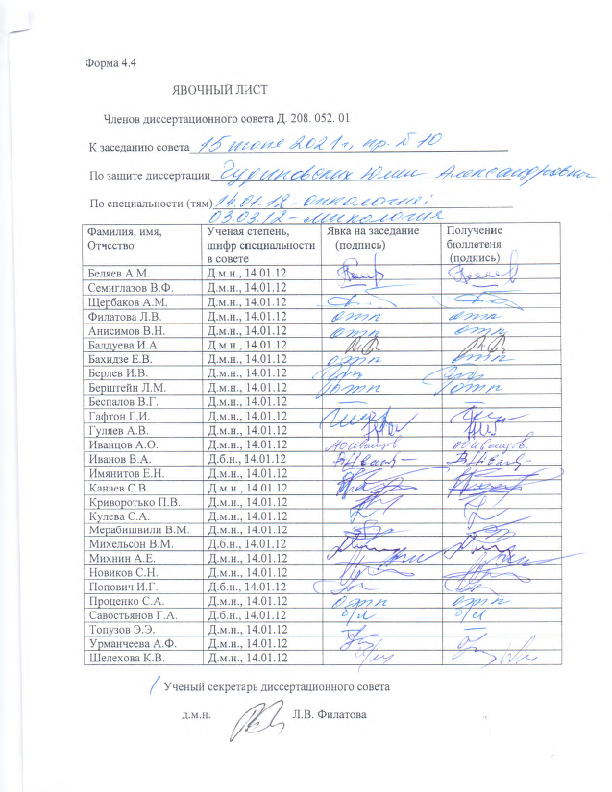 Форма 4.4
ЯВОЧНЫЙ ЛИСТ
Членов диссертационного совета Д. 208. 052. 01
К заседанию совета 15 июня 2021 г, пр. № 10
По защите диссертации Гудиновских Юлии Александровны
По специальности (тям) 14.01.12 - онкология;
03.03.12 - микология
Фамилия, имя, Отчество Ученая степень, шифр специальности в совете Явка на заседание (подпись) Получение бюллетеня (подпись)
Беляев А.М. Д.м.н., 14.01.12
Семиглазов В.Ф. Д.м.н., 14.01.12 — —
Щербаков А.М. Д.м.н., 14.01.12
Филатова Л.В. Д.м.н., 14.01.12 отп отп
Анисимов В.Н. Д.м.н., 14.01.12 отп отп
Балдуева И.А. Д.м.н., 14.01.12
Бахидзе Е.В. Д.м.н., 14.01.12 отп отп
Берлев И.В. Д.м.н., 14.01.12
Берштейн Л.М. Д.м.н., 14.01.12 отп отп
Беспалов В.Г. Д.м.н., 14.01.12 — —
Гафтон Г.И. Д.м.н., 14.01.12
Гуляев А.В. Д.м.н., 14.01.12
Иванцов А.О. Д.м.н., 14.01.12 АО Иванцов АО Иванцов.
Иванов В.А. Д.б.н., 14.01.12
Имянитов Е.Н. Д.м.н., 14.01.12
Канаев С.В. Д.м.н., 14.01.12
Криворотько П.В. Д.м.н., 14.01.12
Кулева С.А. Д.м.н., 14.01.12
Мерабишвили В.М. Д.м.н., 14.01.12
Михельсон В.М. Д.б.н., 14.01.12
Михнин А.Е. Д.м.н., 14.01.12
Новиков С.Н. Д.м.н., 14.01.12
Попович И.Г. Д.б.н., 14.01.12
Проценко С.А. Д.м.н., 14.01.12 отп отп
Савостьянов Г.А. Д.б.н., 14.01.12 б/л б/л
Топузов Э.Э. Д.м.н., 14.01.12 — —
Урманчеева А.Ф. Д.м.н., 14.01.12
Шелехова К.В. Д.м.н., 14.01.12
Ученый секретарь диссертационного совета
д.м.н. Л.В. Филатова